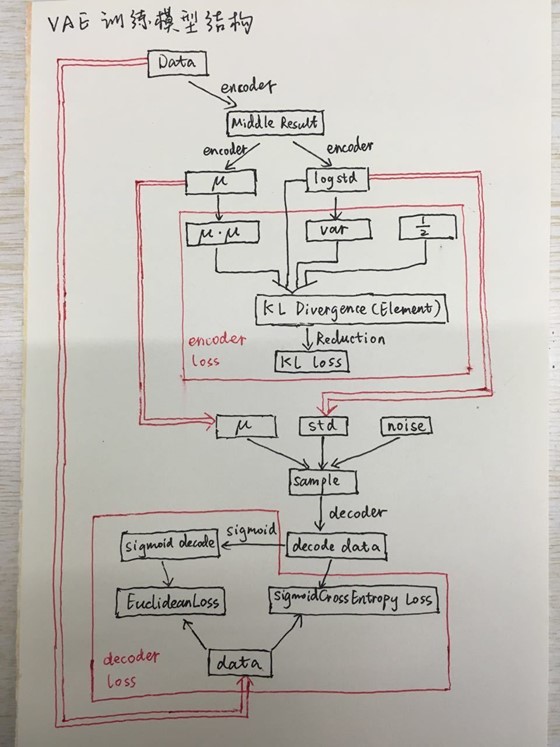 VAE 训练模型结构
Data
encoder
Middle Result
encoder
encoder
μ
logstd
μ·μ
var
1/2
KL Divergence (Element)
Reduction
encoder
loss
KL loss
μ
std
noise
sample
decoder
sigmoid
sigmoid decode
decode data
EuclideanLoss
SigmoidCrossEntropy Loss
data
decoder
loss